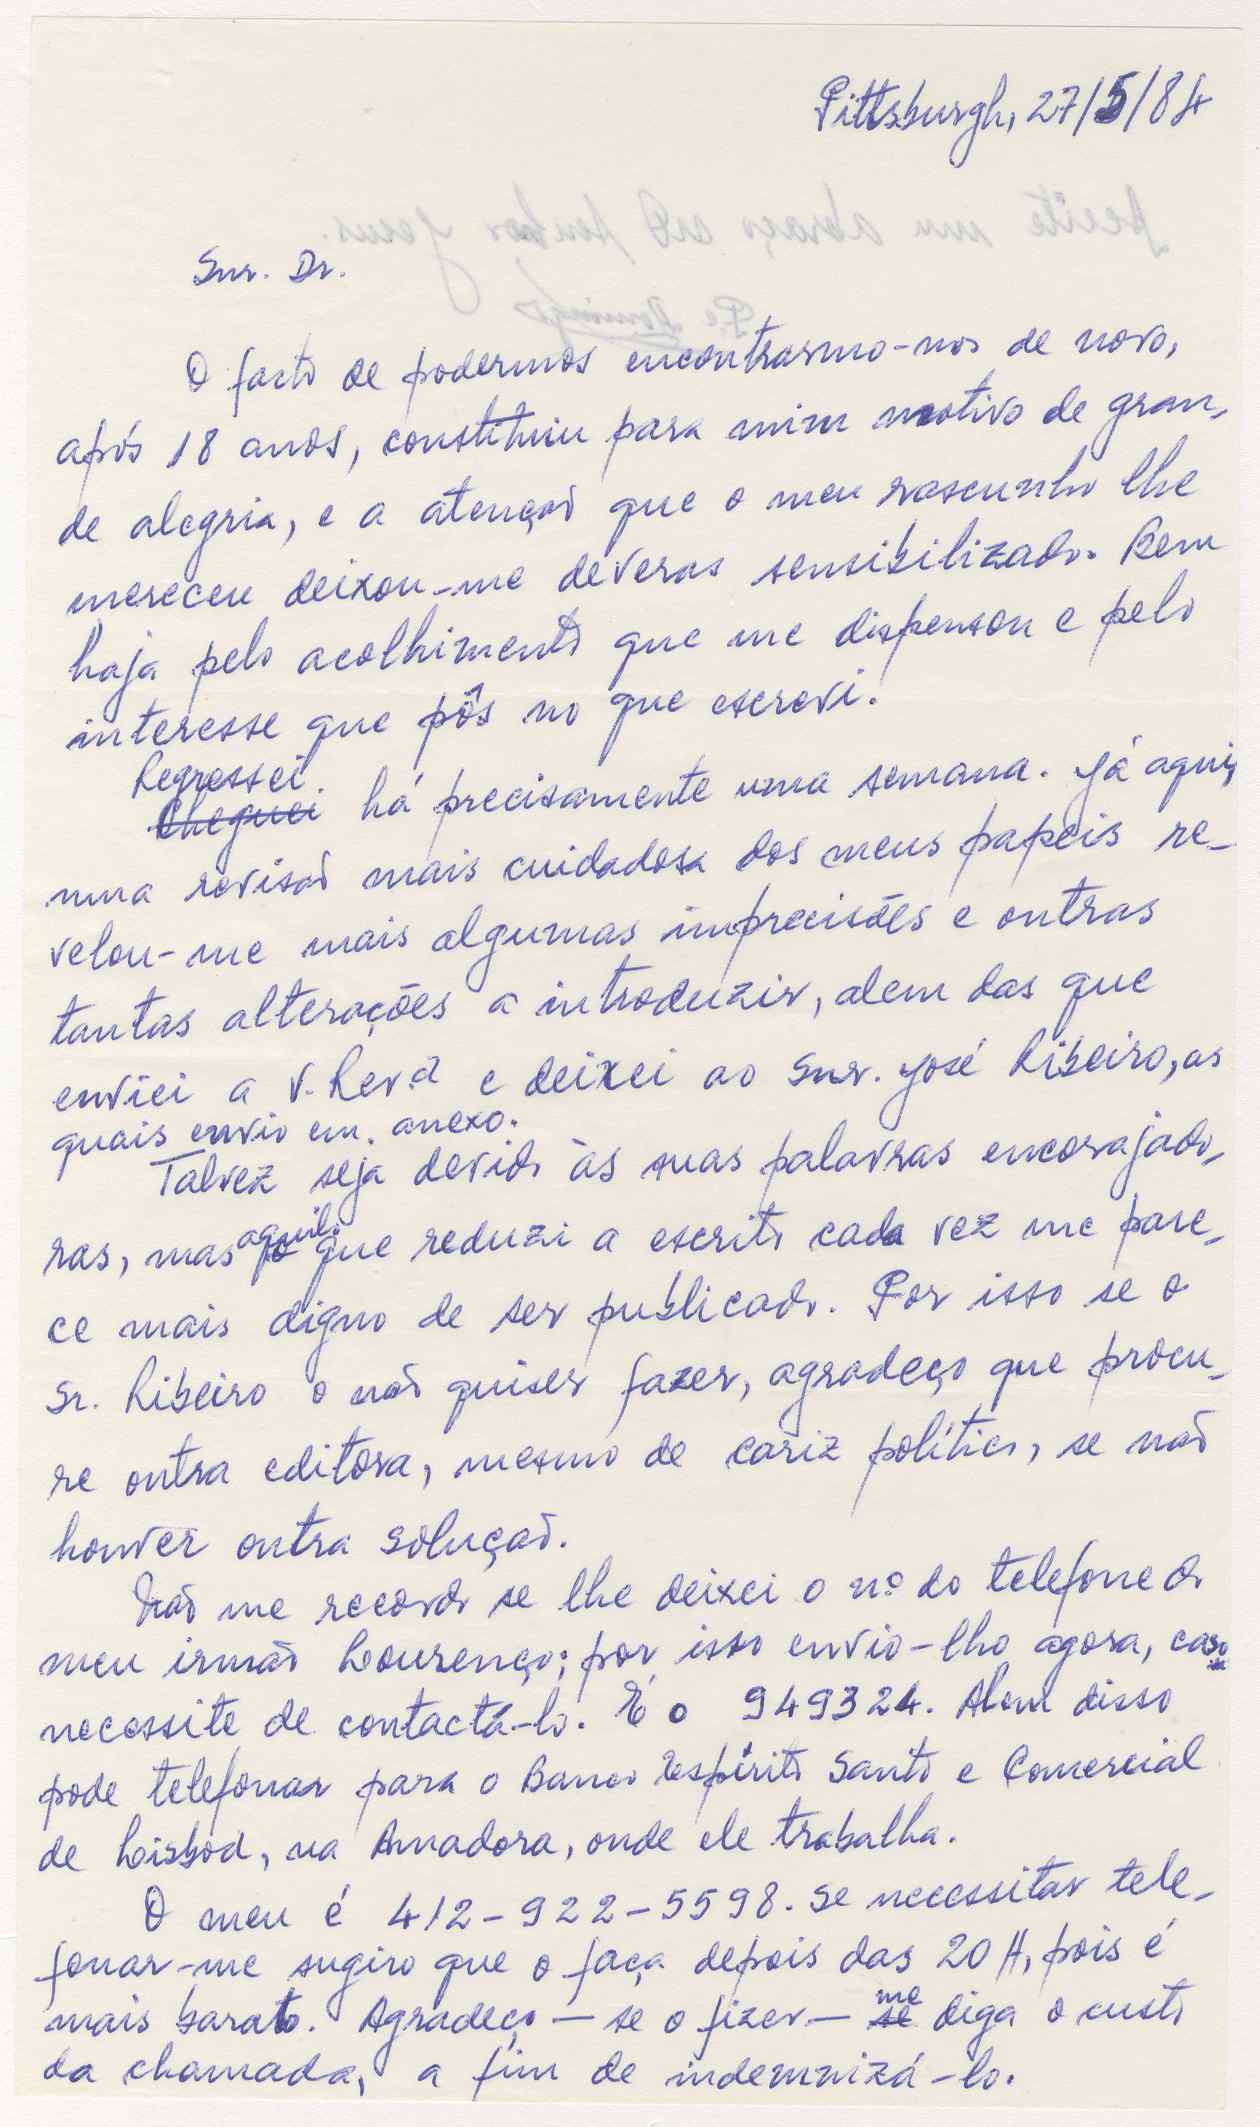 Pittsburgh, 27/5/84
Aceite um abraço do Senhor Jesus.
P.e Domingos
Snr. Dr.
O facto de podermos encontrarmo-nos de novo,
após 18 anos, constituiu para mim motivo de gran-
de alegria, e a atenção que o meu rascunho lhe
mereceu deixou-me deveras sensibilizado. Bem
haja pelo acolhimento que me dispensou e pelo
interesse que pôs no que escrevi.
Regressei
Cheguei há precisamente uma semana. Já aqui,
uma revisão mais cuidadosa dos meus papeis re-
velou-me mais algumas imprecisões e outras
tantas alterações a introduzir, alem das que
enviei a V. Rev.a e deixei ao Snr. José Ribeiro, as
quais envio em anexo.
Talvez seja devido às suas palavras encorajado-
ras, mas aquilo que reduzi a escrito cada vez me pare-
ce mais digno de ser publicado. Por isso se o
Sr. Ribeiro o não quiser fazer, agradeço que procu-
re outra editora, mesmo de cariz político, se não
houver outra solução.
Não me recordo se lhe deixei o nº do telefone do
meu irmão Lourenço; por isso envio-lho agora, caso
necessite de contactá-lo. É o 949324. Alem disso
pode telefonar para o Banco Espírito Santo e Comercial
de Lisboa, na Amadora, onde ele trabalha.
O meu é 412-922-5598. Se necessitar tele-
fonar-me sugiro que o faça depois das 20 H, pois é
mais barato. Agradeço — se o fizer — se me diga o custo
da chamada, a fim de indemnizá-lo.